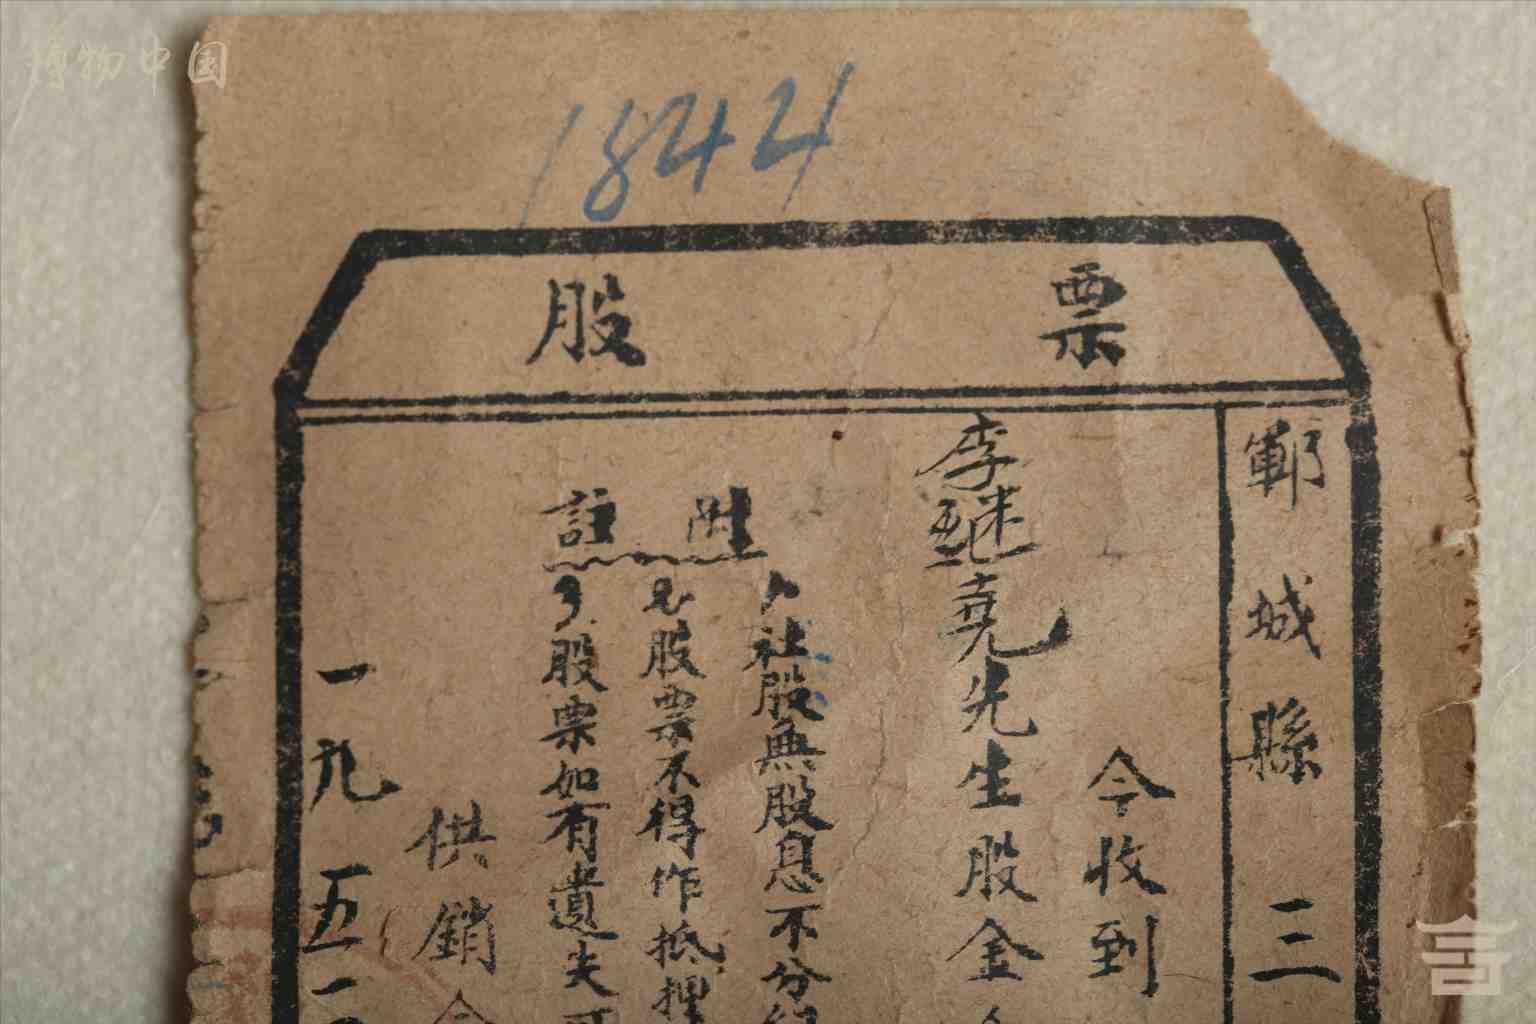 博物中国
1844
股票
鄆城縣三
今收到
李继尧先生股金
附註
1.社股無股息不分紅
2.股票不得作抵押
3.股票如有遺失可
供銷合
一九五